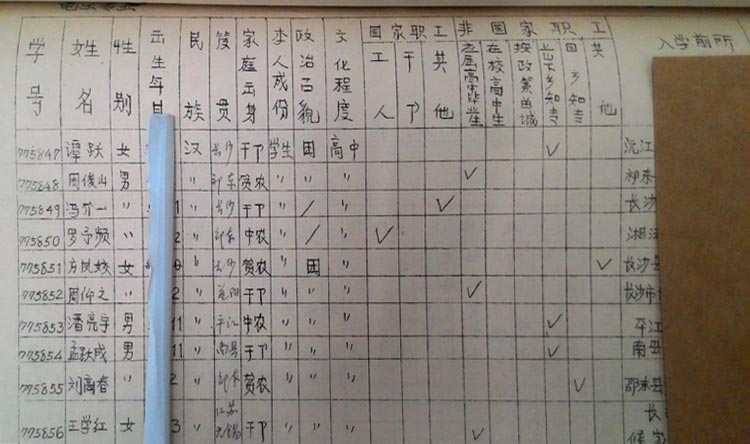 学号 姓名 性别 出生年月 民族 籍贯 家庭出身 本人成份 政治面貌 文化程度 国家职工 非国家职工 入学前所
工人 干卩 其他 应届高毕业生 在校高中生 按政策留城 上山下乡知青 回乡知青 其他
775847 谭跃 女 汉 长沙 干卩 学生 团 高中 ✓ 沅江
775848 周俊山 男 〃 邵东 贫农 〃 〃 〃 ✓ 邵东
775849 冯介一 〃 1 〃 长沙 干卩 〃 / 〃 ✓ 长沙
775850 罗予频 〃 2 〃 邵东 中农 〃 / 〃 ✓ 湘江
775851 方凤姣 女 〃 长沙 贫农 〃 团 〃 ✓ 长沙县
775852 周仲之 〃 2 〃 益阳 干卩 〃 〃 〃 ✓ 长沙市
775853 潘亮宇 男 11 〃 平江 中农 〃 〃 〃 ✓ 平江
775854 孟跃成 男 11 〃 南县 干卩 〃 〃 〃 ✓ 南县
775855 刘高春 〃 2 〃 邵东 贫农 〃 〃 〃 ✓ 邵东县
775856 王学红 女 3 〃 江苏无锡 干卩 〃 〃 〃 ✓ 长